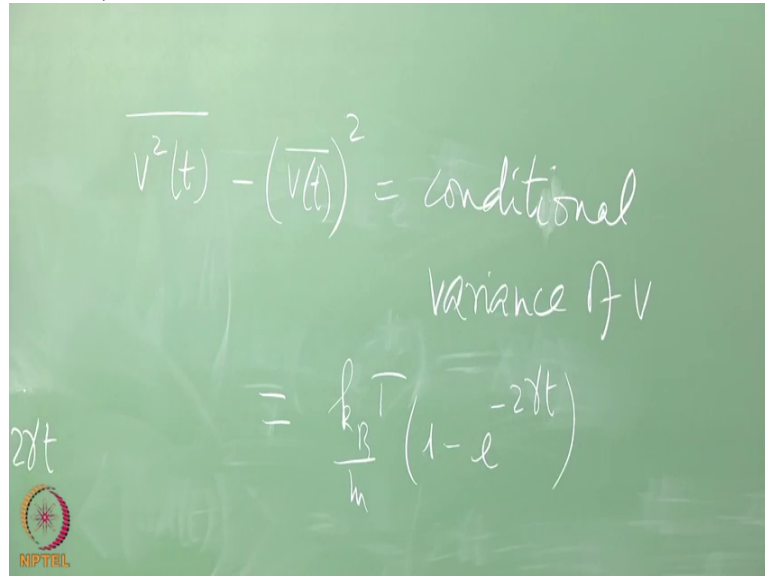 \overline{v^2(t)} - (\overline{v(t)})^2 = conditional
variance of v
= \frac{k_B T}{m} (1 - e^{-2γt})
2γt
NPTEL